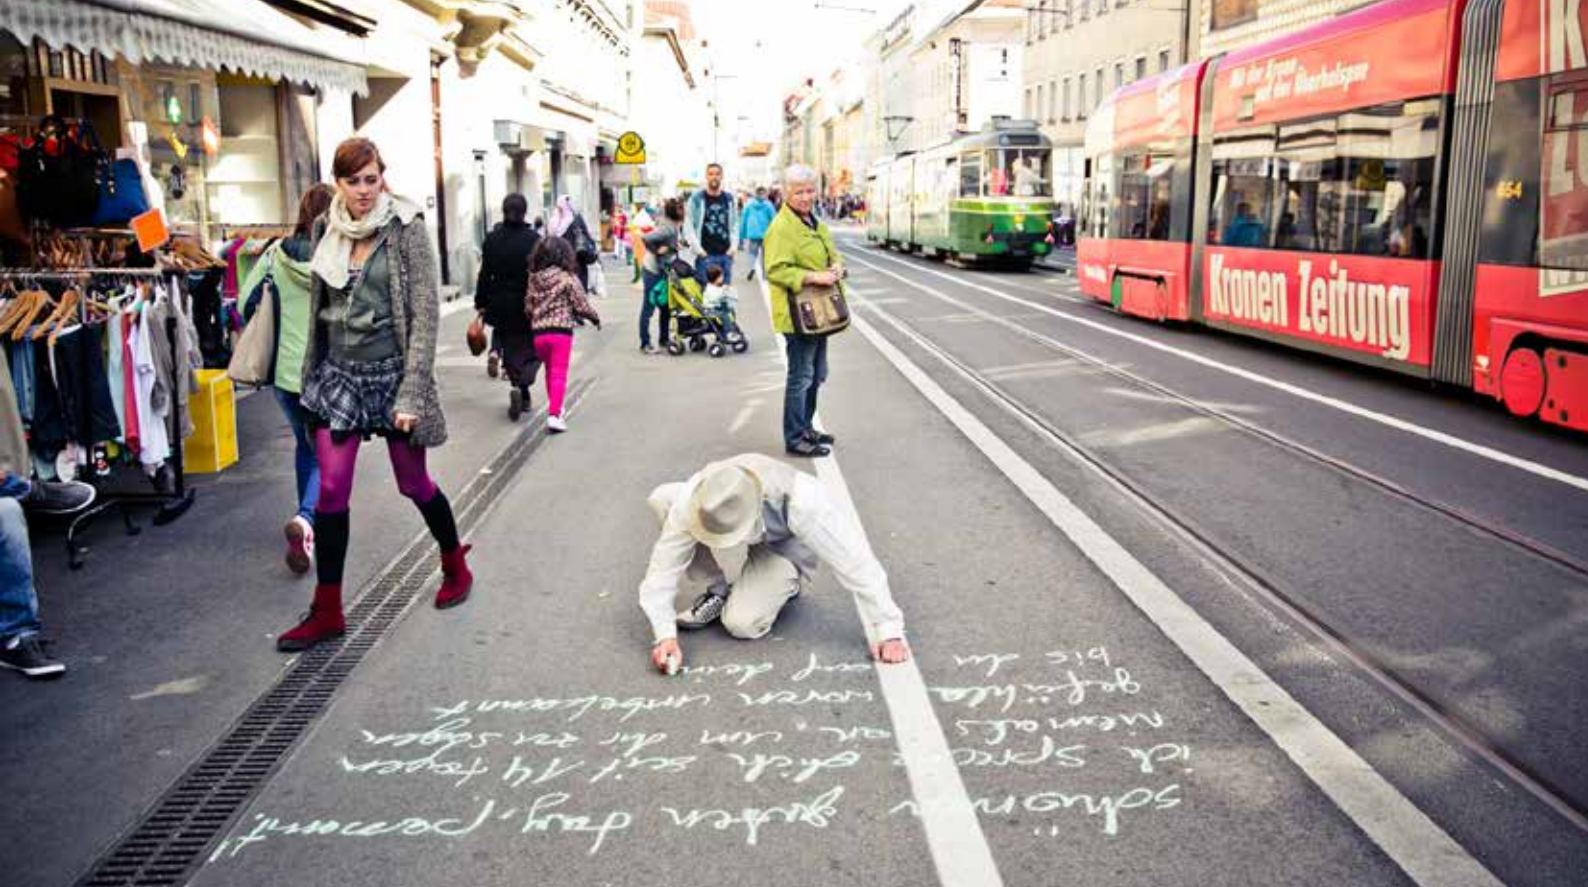 Mit der Krone
auf der Überholspur
654
Kronen Zeitung
schönen guten tag, passant!
ich spreche dich seit 14 tagen
niemals an, um dir zu sagen
gefühle waren unbekannt
bis du auf dein